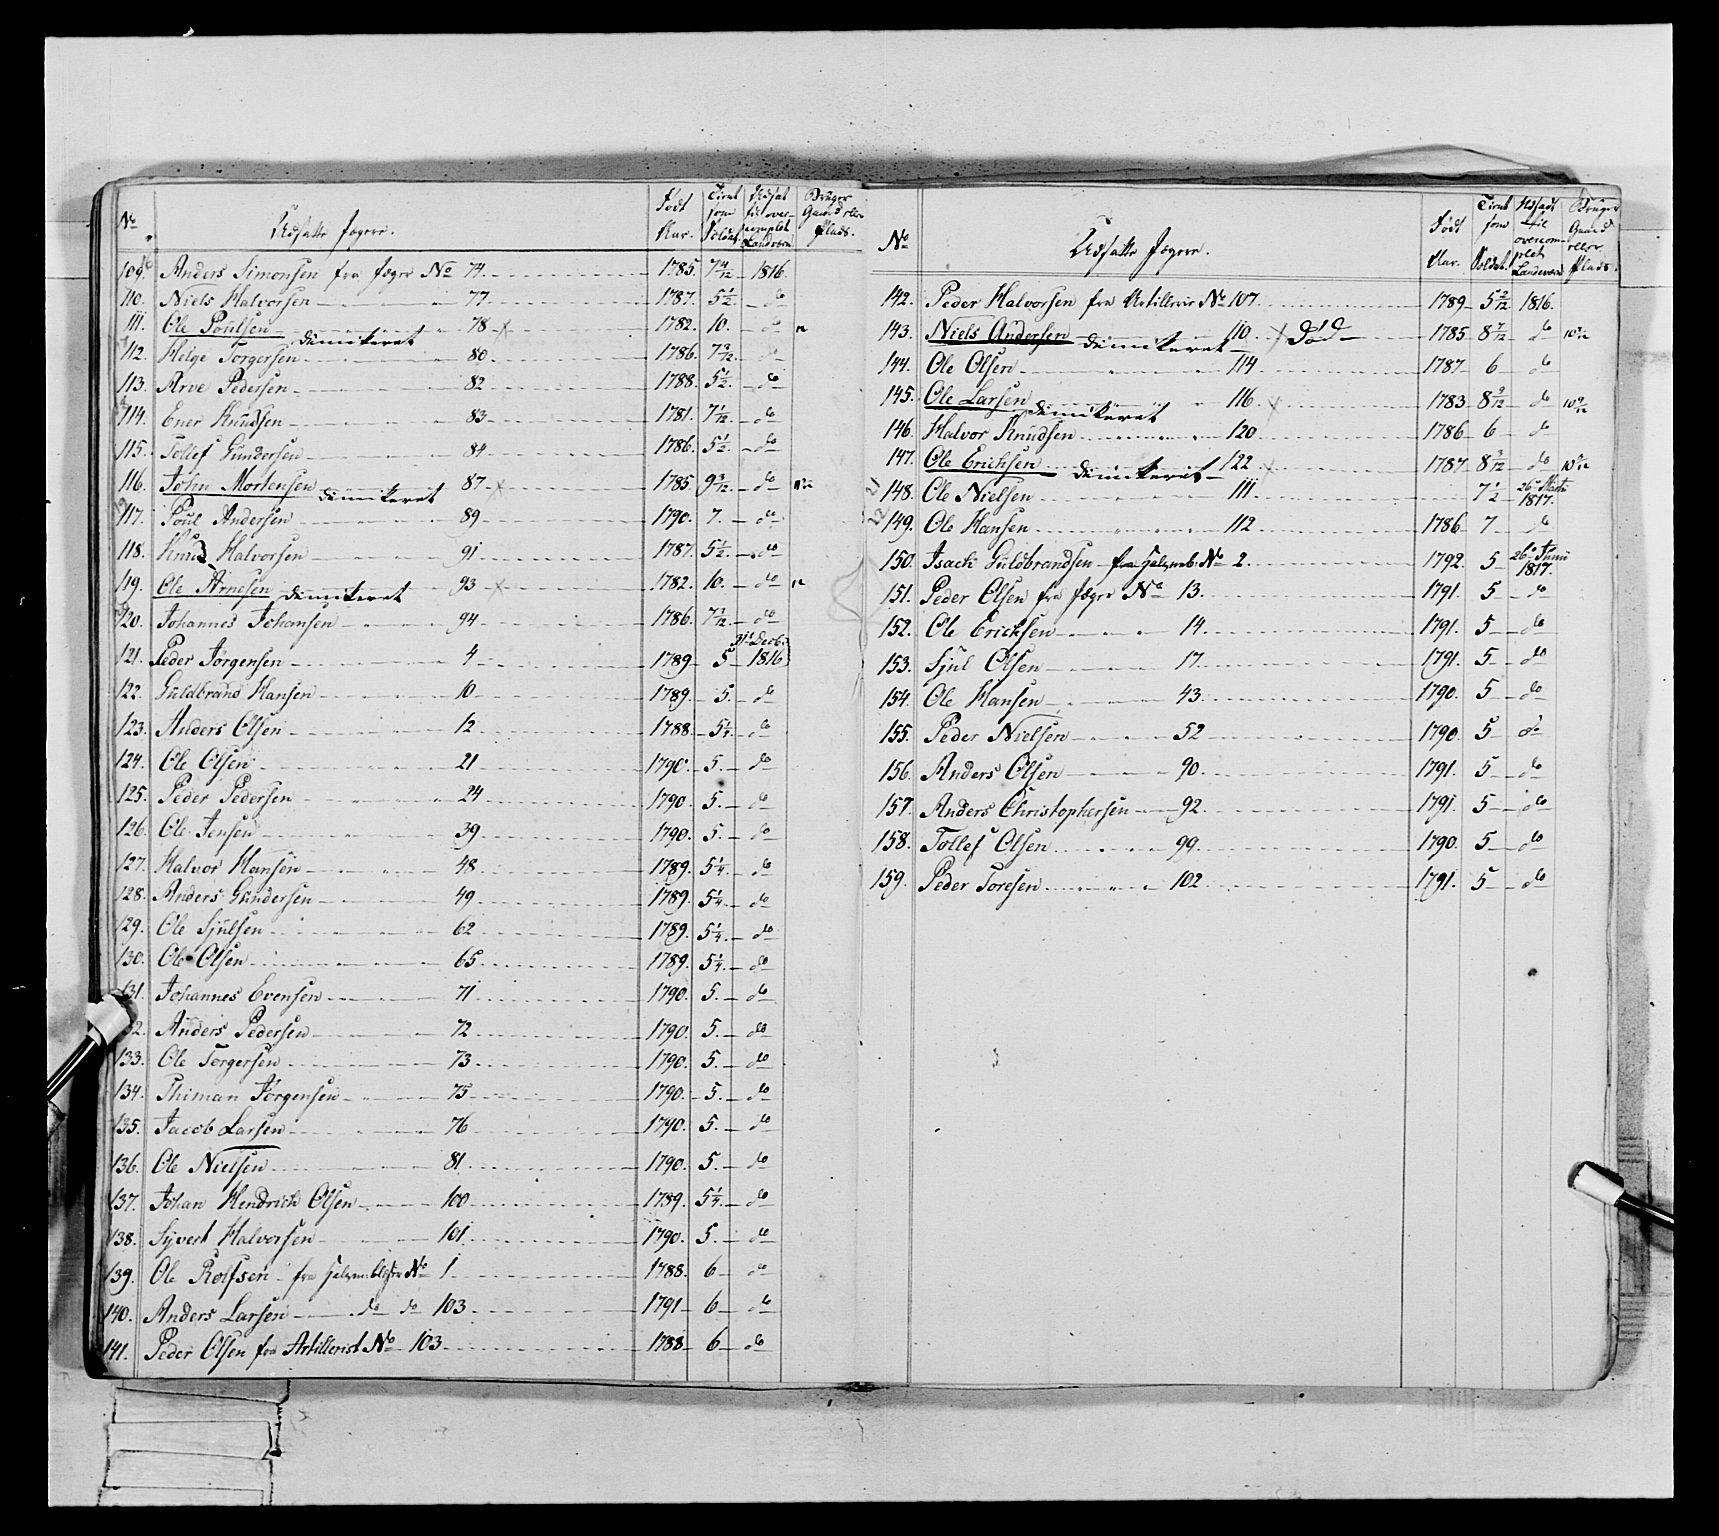 No
Udsatte Jægere.
Født Aar.
Tient som Soldat.
Udsat til overcomplet Landværn
Bruger Gaard eller Plads.
109. Anders Simonsen fra Jæger No 74. 1785. 7 4/12 1816.
110. Niels Halvorsen 77. 1787. 5 1/2 do
111. Ole Poulsen dimitteret 78 1782. 10. do
112. Helge Torgersen 80 1786. 7 3/12 do
113. Arve Pedersen 82 1788. 5 1/2 do
114. Ener Knudsen 83 1781. 7 1/12 do
115. Tollef Gundersen 84 1786. 5 1/2 do
116. John Mortensen dimitteret 87 1785 9 3/12 do
117. Poul Andersen 89 1790. 7. do
118. Knud Halvorsen 91 1787. 5 1/2 do
119. Ole Arnesen dimitteret 93 1782. 10. do
120. Johannes Johansen 94 1786. 7 1/12 do
121. Peder Jørgensen 4 1789 5 31t Decb. 1816
122. Guldbrand Hansen 10 1789. 5. do
123. Anders Olsen 12 1788 5 1/4 do
124. Ole Olsen 21 1790. 5. do
125. Peder Pedersen 24 1790. 5. do
126. Ole Jensen 39 1790. 5. do
127. Halvor Hansen 48 1789. 5 1/4 do
128. Anders Gundersen 49 1789. 5 1/4 do
129. Ole Sjulsen 62 1789. 5 1/4 do
130. Ole Olsen 65 1789. 5 1/4 do
131. Johannes Evensen 71 1790. 5. do
132. Anders Pedersen 72 1790. 5. do
133. Ole Torgersen 73 1790. 5. do
134. Thiman Jørgensen 75 1790. 5. do
135. Jacob Larsen 76 1790. 5. do
136. Ole Nielsen 81 1790. 5. do
137. Johan Hendrich Olsen 100 1789. 5 1/4 do
138. Syvert Halvorsen 101 1790. 5. do
139. Ole Rolfsen fra No 1 1788. 6 do
140. Anders Larsen do do 103 1791 6 do
141. Peder Olsen fra Artillerist No 103 1788 6 do
No
Udsatte Jægere.
Født Aar.
Tient som Soldat.
Udsadt til overcomplet Landeværn
Bruger Gaard eller Plads.
142. Peder Halvorsen fra Artillerie No 107. 1789 5 2/12 1816.
143. Niels Andersen dimitteret 110. Død 1785 8 7/12 do
144. Ole Olsen 114 1787 6 do
145. Ole Larsen dimitteret 116 1783 8 3/12 do
146. Halvor Knudsen 120 1786 6 do
147. Ole Erichsen dimitteret 122 1787 8 3/12 do
148. Ole Nielsen 111 7 1/2 26 Marts 1817.
149. Ole Hansen 112 1786 7 do
150. Isach Guldbrandsen fra No 2. 1792. 5 26 Junii 1817.
151. Peder Olsen fra Jæger No 13. 1791. 5 do
152. Ole Ericksen 14. 1791. 5 do
153. Sjul Olsen 17. 1791. 5 do
154. Ole Hansen 43. 1790. 5 do
155. Peder Nielsen 52 1790. 5 do
156. Anders Olsen 90. 1791. 5 do
157. Anders Christophersen 92. 1791. 5 do
158. Tollef Olsen 99. 1790. 5 do
159. Peder Toresen 102 1791. 5 do